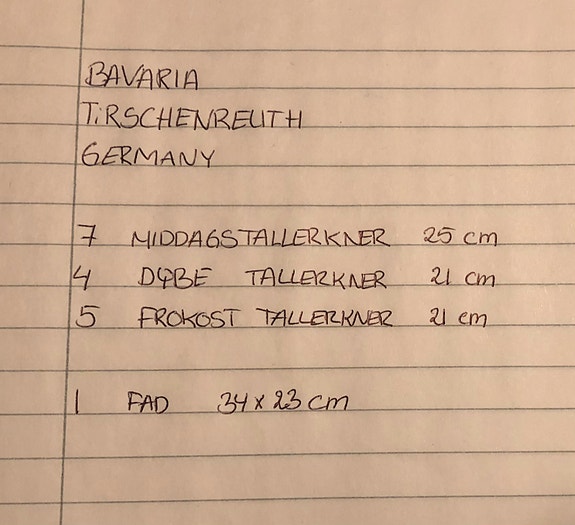 BAVARIA
TIRSCHENREUTH
GERMANY
7 MIDDAGSTALLERKNER 25 cm
4 DYBE TALLERKNER 21 cm
5 FROKOST TALLERKNER 21 cm
1 FAD 34 x 23 cm